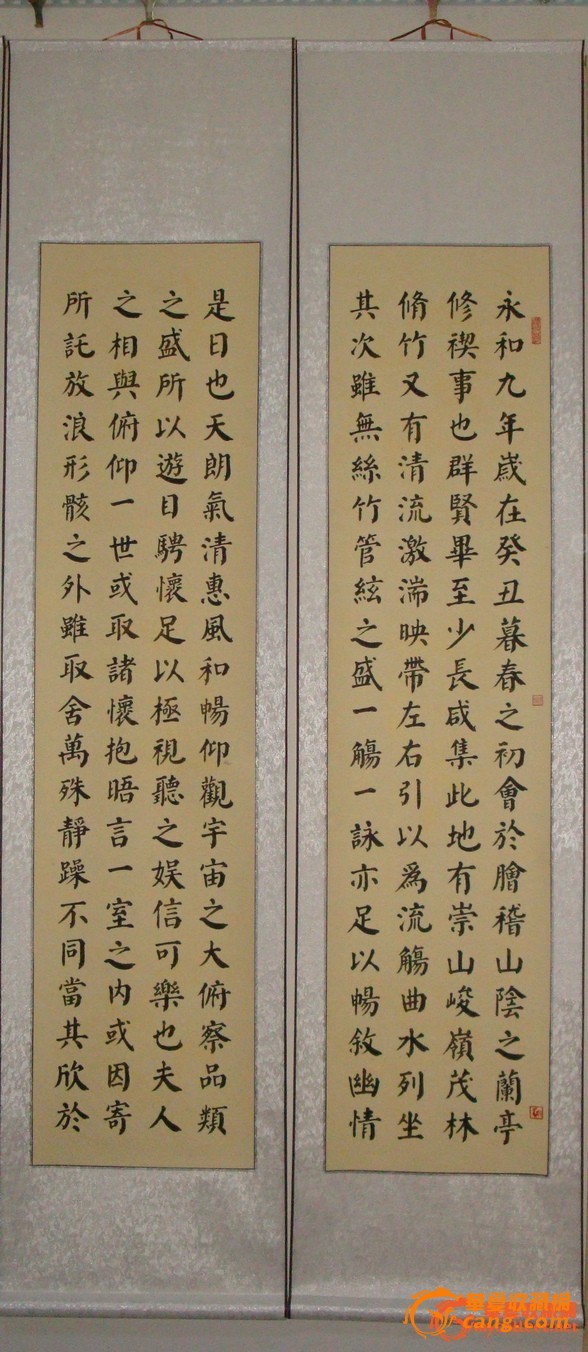 永和九年歲在癸丑暮春之初會於膾稽山陰之蘭亭
修禊事也群賢畢至少長咸集此地有崇山峻嶺茂林
脩竹又有清流激湍映帶左右引以爲流觴曲水列坐
其次雖無絲竹管絃之盛一觴一詠亦足以暢敘幽情
是日也天朗氣清惠風和暢仰觀宇宙之大俯察品類
之盛所以遊目騁懷足以極視聽之娛信可樂也夫人
之相與俯仰一世或取諸懷抱晤言一室之内或因寄
所託放浪形骸之外雖取舍萬殊靜躁不同當其欣於
華夏收藏網
cang.com